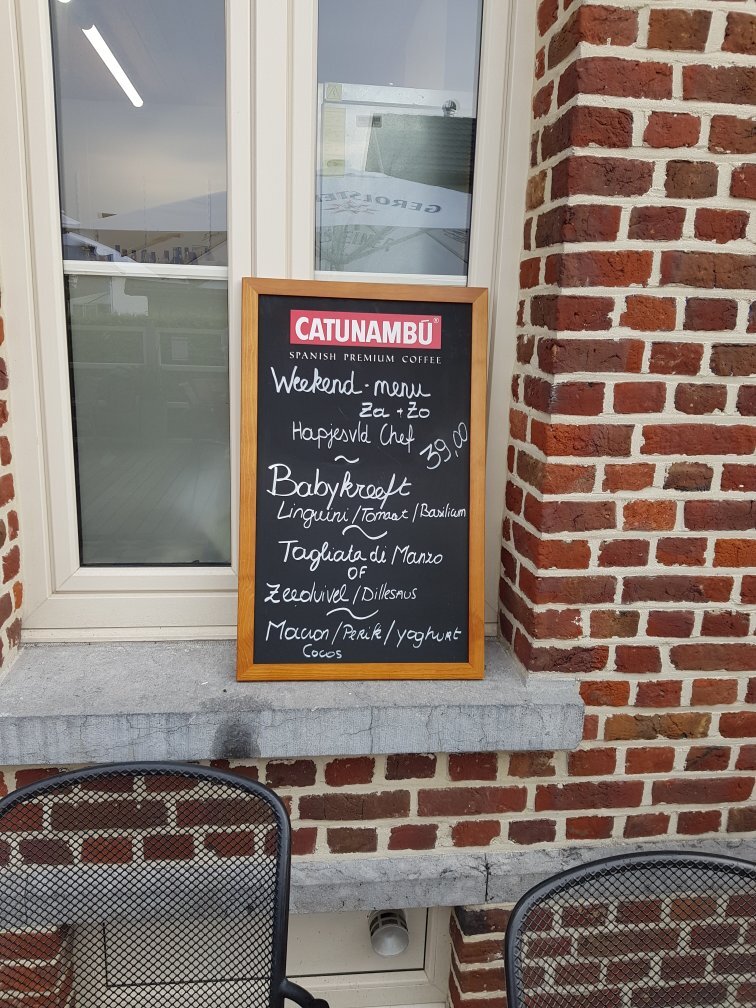 GEROLSTE
CATUNAMBÚ®
SPANISH PREMIUM COFFEE
Weekend-menu
Za + Zo
Hapjesvld Chef 39,00
~
Babykreeft
Linguini/Tomaat/Basilicum
~
Tagliata di Manzo
OF
Zeeduivel/Dillesaus
~
Macron/Perzik/yoghurt
Cocos